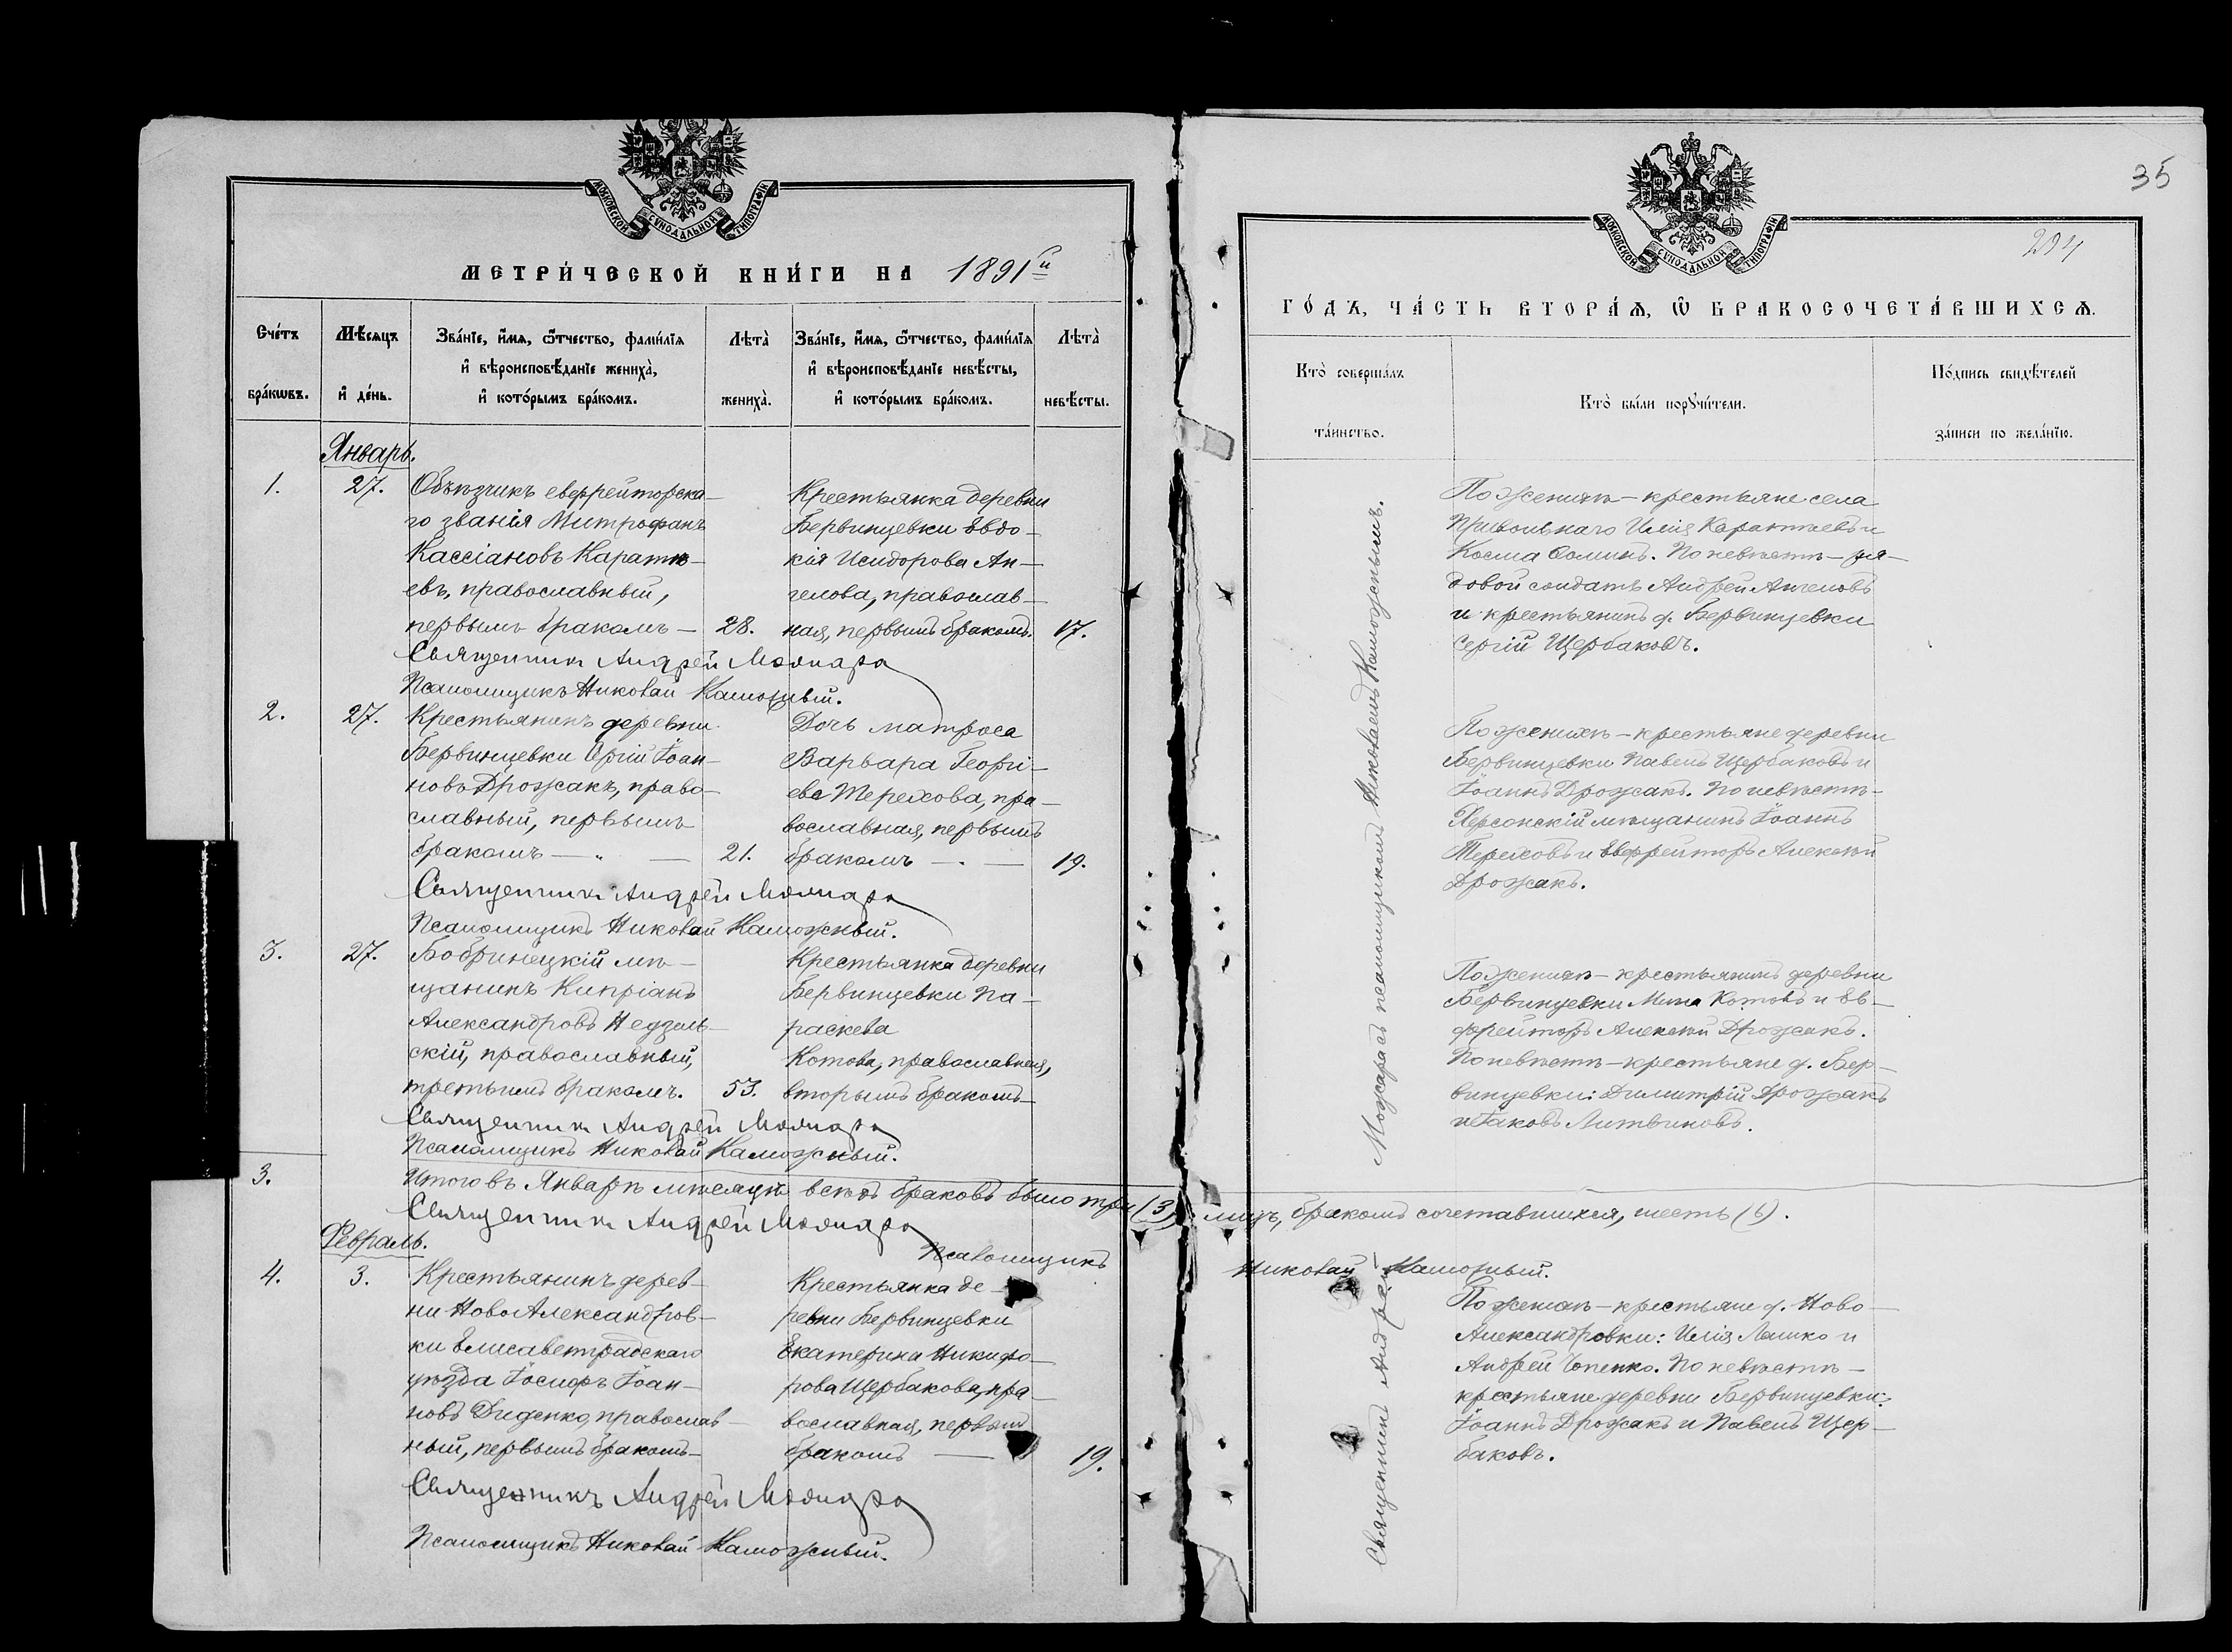 МОСКОВСКОЙ СУНОДАЛЬНОЙ ТИПОГРАФІИ
МЕТРИ́ЧЕСКОЙ КНИ́ГИ НА 1891й
Сче́тъ бра́кѡвъ.
Мѣ́сяцъ и҆ де́нь.
Зва́нїе, и҆́мя, ѻ҆́тчество, фами́лїя
и҆ вѣроисповѣ́данїе жениха̀,
и҆ кото́рымъ бра́комъ.
Лѣта̀ жениха̀.
Зва́нїе, и҆́мя, ѻ҆́тчество, фами́лїя
и҆ вѣроисповѣ́данїе невѣ́сты,
и҆ кото́рымъ бра́комъ.
Лѣта̀ невѣ́сты.
Январь.
1. 27.
Объѣзчикъ еверрейторска-
го званія Митрофанъ
Кассіановъ Каратѣ-
евъ, православный,
первымъ бракомъ — 28.
Крестьянка деревни
Бервинцевки Евдо-
кія Исидорова Ан-
гелова, православ-
ная, первымъ бракомъ. 17.
Священникъ Андрей
Псаломщикъ Николай Каможный.
2. 27.
Крестьянинъ деревни
Бервинцевки Сергій Іоан-
новъ Дрожакъ, право-
славный, первымъ
бракомъ — „ — 21.
Дочь матроса
Варвара Георгі-
ева Терехова, пра-
вославная, первымъ
бракомъ — . — 19.
Священникъ Андрей
Псаломщикъ Николай Каможный.
3. 27.
Бобринецкій мѣ-
щанинъ Кипріанъ
Александровъ Недзель-
скій, православный,
третьимъ бракомъ. 53.
Крестьянка деревни
Бервинцевки Па-
раскева
Котова, православная,
вторымъ бракомъ
Священникъ Андрей
Псаломщикъ Николай Каможный.
3.
Итого въ Январѣ мѣсяцѣ всѣхъ браковъ было три (3), лицъ, бракомъ сочетавшихся, шесть (6).
Священникъ Андрей
Псаломщикъ Николай Каможный.
Февраль.
4. 3.
Крестьянинъ дерев-
ни Ново Александров-
ки Елисаветградскаго
уѣзда Іосифъ Іоан-
новъ Диденко, православ-
ный, первымъ бракомъ-
Крестьянка де-
ревни Бервинцевки
Екатерина Никифо-
рова Щербакова, пра-
вославная, первымъ
бракомъ — 19.
Священникъ Андрей
Псаломщикъ Николай Каможный.
35
МОСКОВСКОЙ СУНОДАЛЬНОЙ ТИПОГРАФІИ
ГО́ДЪ, ЧА́СТЬ ВТОРА́Ѧ, Ѽ БРАКОСОЧЕТА́ВШИХСѦ.
Кто̀ соверша́лъ
та́инство.
Кто̀ бы́ли порꙋчи́тели.
По́дпись свидѣ́телей
за́писи по жела́нїю.
Священникъ Андрей
псаломщикомъ Николаемъ Каможнымъ.
По женихѣ — крестьяне села
Привольнаго Илія Каратѣевъ и
Косма Ѳоминъ. По невѣстѣ — ря-
довой солдатъ Андрей Ангеловъ
и крестьянинъ д. Бервинцевки
Сергій Щербаковъ.
По женихѣ — крестьяне деревни
Бервинцевки Павелъ Щербаковъ и
Іоаннъ Дрожакъ. По невѣстѣ-
Херсонскій мѣщанинъ Іоаннъ
Тереховъ и Еверейторъ Алексѣй
Дрожакъ.
По женихѣ — крестьянинъ деревни
Бервинцевки Мина Котовъ и Ев-
фрейторъ Алексѣй Дрожакъ.
По невѣстѣ — крестьяне д. Бер-
винцевки: Димитрій Дрожакъ
и Іаковъ Литвиновъ.
По женихѣ — крестьяне д. Ново-
Александровки: Илія Ляшко и
Андрей Чопенко. По невѣстѣ —
крестьяне деревни Бервинцевки:
Іоаннъ Дрожакъ и Павелъ Щер-
баковъ.